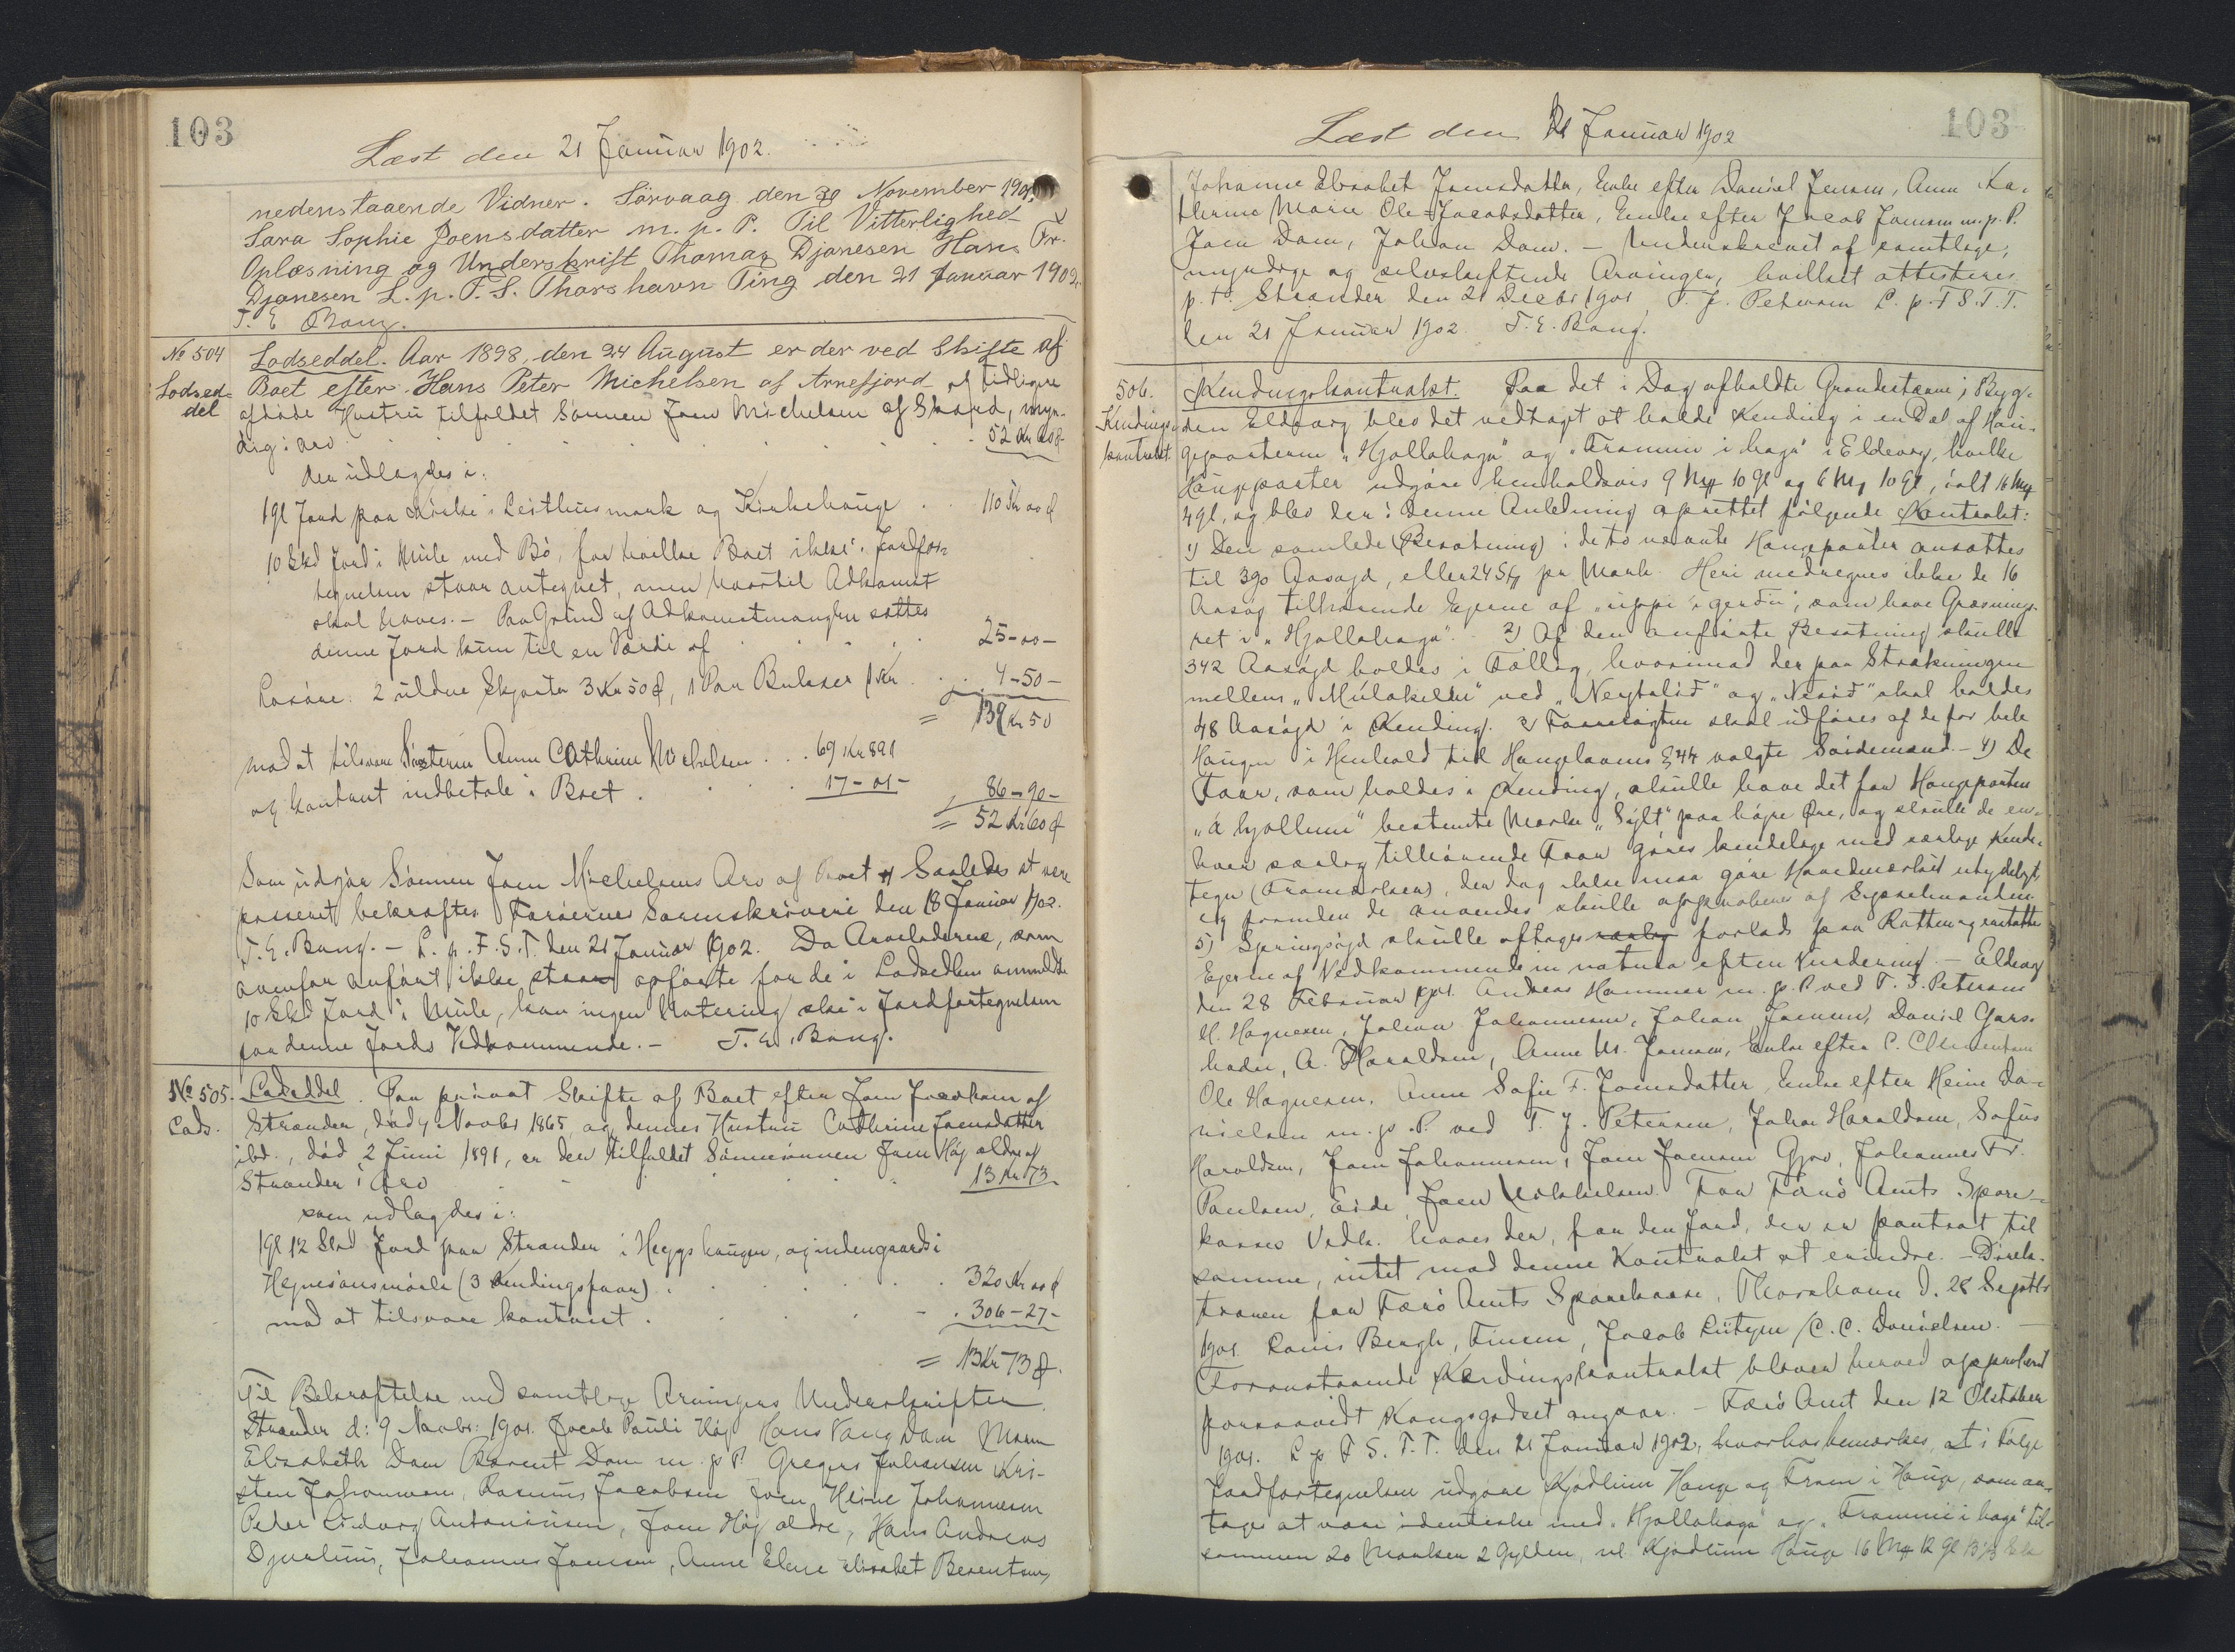 103
Læst den 21 Januar 1902.
nedenstaaende Vidner. Sörvaag den 30 November 1901.
Sara Sophie Joensdatter m. p. P. Til Vitterlighed
Oplæsning og Underskrift Thomas Djonesen Hans Fr.
Djonesen L. p. F. S. Thorshavn Ting den 21 Januar 1902.
T. E. Bang.
No 504
Lodsed-
del
Lodseddel. Aar 1898, den 24 August er der ved Skifte af
Boet efter Hans Peter Michelsen af Arnefjord og tidligere
afdöde Hustru tilfaldet Sönnen Joen Michelsen af Skaapd, myn-
dig i Arv 52 Kr 60 Ø
der udlagdes i:
1 Gl Jord paa Kirke i Leithusmark og Kirkehauge 110 Kr 00 Ø
10 Skd Jord i Mule med Bö, for hvilke Boet ikke i Jordfor-
tegnelsen staar antegnet, men hvortil Adkomst
skal haves. - Paa Grund af Adkomstmanglen sættes
denne Jord kun til en Værdi af 25-00-
Lösöre: 2 uldne Skjorter 3 Kr 50 Ø, 1 Par Bukser 1 Kr 4-50-
= 139 Kr 50
mod at tilsvare Sösteren Anne Cathrine Michelsen 69 Kr 89 Ø
og kontant indbetale i Boet 17-01-
86-90-
= 52 Kr 60 Ø
Som udgjör Sönnen Joen Michelsens Arv af Boet. Saaledes at være
passeret bekræftes Færöernes Sorenskriveri den 18 Januar 1902.
T. E. Bang. - L. p. F. S. T. den 21 Januar 1902. Da Arveladerne, som
ovenfor anfört ikke staar opförte for de i Lodsedlen anmeldte
10 Skd Jord i Mule, kan ingen Notering ske i Jordfortegnelsen
for denne Jords Vedkommende. - T. E. Bang.
No 505.
Lods.
Lodseddel. Paa privat Skifte af Boet efter Joen Joenskein af
Strænder, död 4 Novbr 1865 og dennes Hustru Cathrine Joensdatter
ibd., död 2 Juni 1891, er der tilfaldet Sönnesönnen Joen Höj ældre af
Strænder i Arv 13 Kr 73
som udlagdes i:
1 Gl 12 Skd Jord paa Strænder i Heygshaugen, og indengaards i
Hegnisönsmörk (3 Kendingsfaar) 320 Kr 00 Ø
mod at tilsvare kontant 306-27-
= 13 Kr 73 Ø.
Til Bekræftelse med samtlige Arvingers Underskrifter.
Strænder d: 9 Novbr: 1901. Jacob Pauli Höj Hans Vang Dam Maren
Elisabeth Dam Berent Dam m. p. P. Gregers Johansen Kri-
sten Johannesen, Rasmus Jacobsen Joen Heine Johannesen
Peter Ludvig Antoniussen, Joen Höj ældre, Hans Andreas
Djurhuus, Johannes Joensen, Anne Elene Elisabet Berentsen,
103
Læst den 21 Januar 1902
Johanne Elisabet Joensdatter, Enke efter Daniel Jensen, Anne Ka-
thrine Marie Ole-Jacobsdatter, Enke efter Jacob Joensen m. p. P.
Joen Dam, Johan Dam. - Underskrevet af samtlige,
myndige og selvskiftende Arvinger, hvilket attesteres
p. t. Strænder den 21 Decbr 1901 T. J. Petersen L. p. F. S. T. T.
den 21 Januar 1902. T. E. Bang.
506.
Kendings-
kontrakt.
Kendingskontrakt. Paa det i Dag afholdte Grandestævne i Byg-
den Eldevig blev det vedtaget at holde Kending i en Del af Hau-
geparterne "Hjollahaga" og "Frammi i haga" i Eldevig, hvilke
Haugeparter udgöre henholdsvis 9 Mrk 10 Gl og 6 Mrk 10 Gl, ialt 16 Mrk
4 Gl, og blev der i denne Anledning oprettet fölgende Kontrakt:
1) Den samlede (Besætning) i de to nævnte Haugeparter ansættes
til 390 Aasöjd, eller 24 Stk pr Mark. Heri medregnes ikke de 16
Aasöj tilhörende Ejerne af "uppi i gerdi", som have Græsnings-
ret i "Hjollahaga". 2) Af den anförte Besætning skulle
342 Aasöjd holdes i Fællig, hvorimod der paa Strækningen
mellem "Múlakelda" ved "Neytalid" og "Nesid" skal holdes
48 Aasöjd i Kending. 3) Faarerögten skal udföres af de for hele
Haugen i Henhold til Haugelovens § 44 valgte Söidemænd. - 4) De
Faar, som holdes i Kending, skulle have det for Hauge­parten
"á hjollum" bestemte Mærke "Sýlt" paa höjre Öre, og skulle de en-
hver særlig tilhörende Faar göres kendelige med særlige Kende-
tegn (Frammerker), der dog ikke maa göre Hovedmærket utydeligt
og forinden de anvendes skulle approberes af Sysselmanden.
5) Springsöjd skulle aftages særlig forlods paa Rætten og erstatte
Ejerne af Vedkommende in natura efter Vurdering. - Eldevig
den 28 Februar 1901. Andreas Hammer m. p. P. ved T. J. Petersen
M. Hognesen, Johan Johannesen, Johan Joensen, Daniel Gars-
hoder, A. Haraldsen, Anne M. Joensen, Enke efter P. Clementsen
Ole Hognesen. Anne Sofie F. Joensdatter, Enke efter Heine Da-
nielsen m. p. P. ved T. J. Petersen, Johan Haraldsen, Sofus
Haraldsen, Joen Johannesen, Joen Joensen Gjov, Johannes Fr.
Poulsen, Eide, Joen Mikkelsen. For Færö Amts Spare-
kasses Vedk. haves der, for den Jord, der er pantsat til
samme, intet mod denne Kontrakt at erindre. - Direk-
tionen for Færö Amts Sparekasse, Thorshavn d. 28 Septbr
1901. Louis Bergh, Finsen, Jacob Lützen /C. C. Danielsen. -
Foranstaaende Kendingskontrakt bliver herved approberet
forsaavidt Kongsgodset angaar. - Færö Amt den 12 Oktober
1901. L. p. F. S. T. T. den 21 Januar 1902, hvorhos bemærkes, at i Fölge
Jordfortegnelsen udgöre Kjødlum Hauge og Fram i Hauge, som an-
tages at være identiske med "Hjollahaga" og "Frammi i haga" til-
sammen 20 Marker 2 Gylden, nl. Kjødlum Hauge 16 Mrk 12 Gl